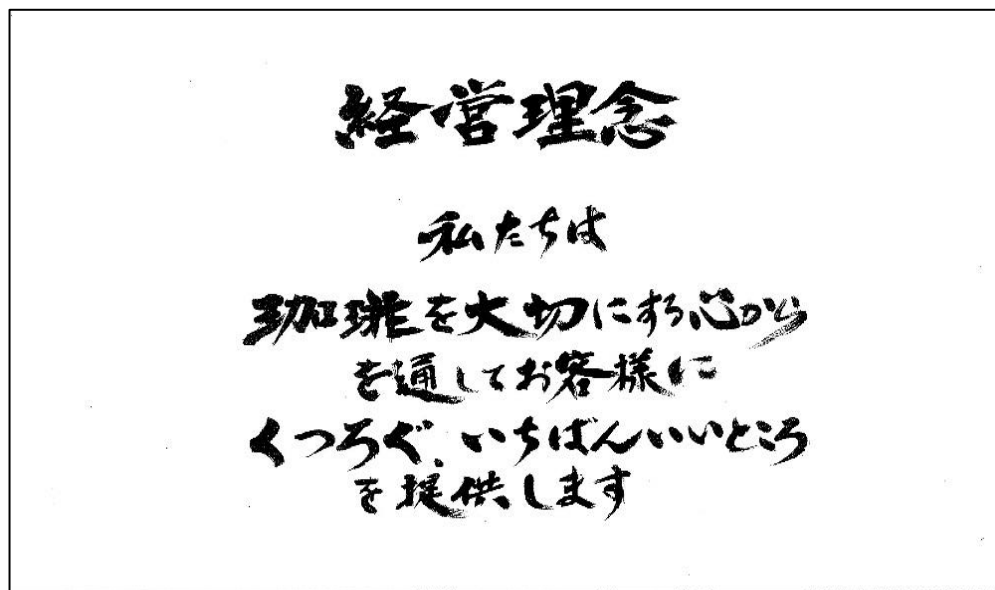 経営理念
私たちは
珈琲を大切にする心から
を通してお客様に
くつろぐ、いちばんいいところ
を提供します